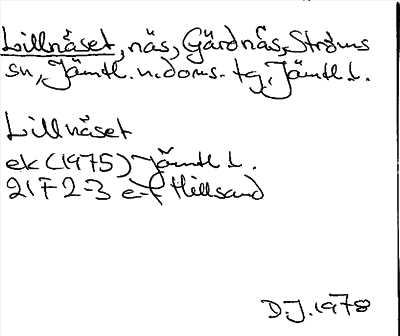 Lillnäset, näs, Gärdnäs, Ströms
sn, Jämtl. n. doms. tg, Jämtl. l.
Lillnäset
ek (1975) Jämtl l.
21F 2-3 e-f Hillsand
D.J. 1978